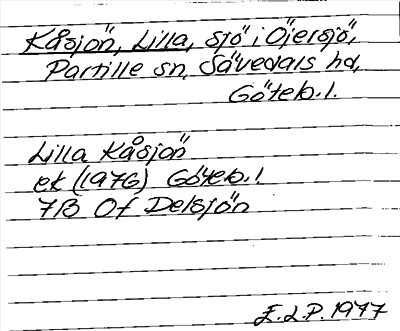 Kåsjön, Lilla, sjö i Öjersjö,
Partille sn, Sävedals hd,
Göteb. l.
Lilla Kåsjön
ek (1976) Göteb. l.
7B Of Delsjön
E.L.P. 1977